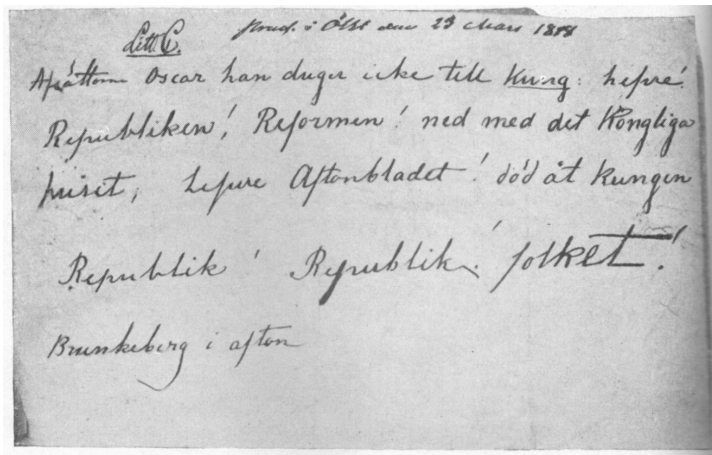 Litt. C.
Prod. i ÖÅSt den 23 Mars 1848
Afsättom Oscar han duger icke till Kung: lefve!
Republiken! Reformen! ned med det Kongliga
huset, lefve Aftonbladet! död åt kungen
Republik! Republik! folket!
Brunkeberg i afton